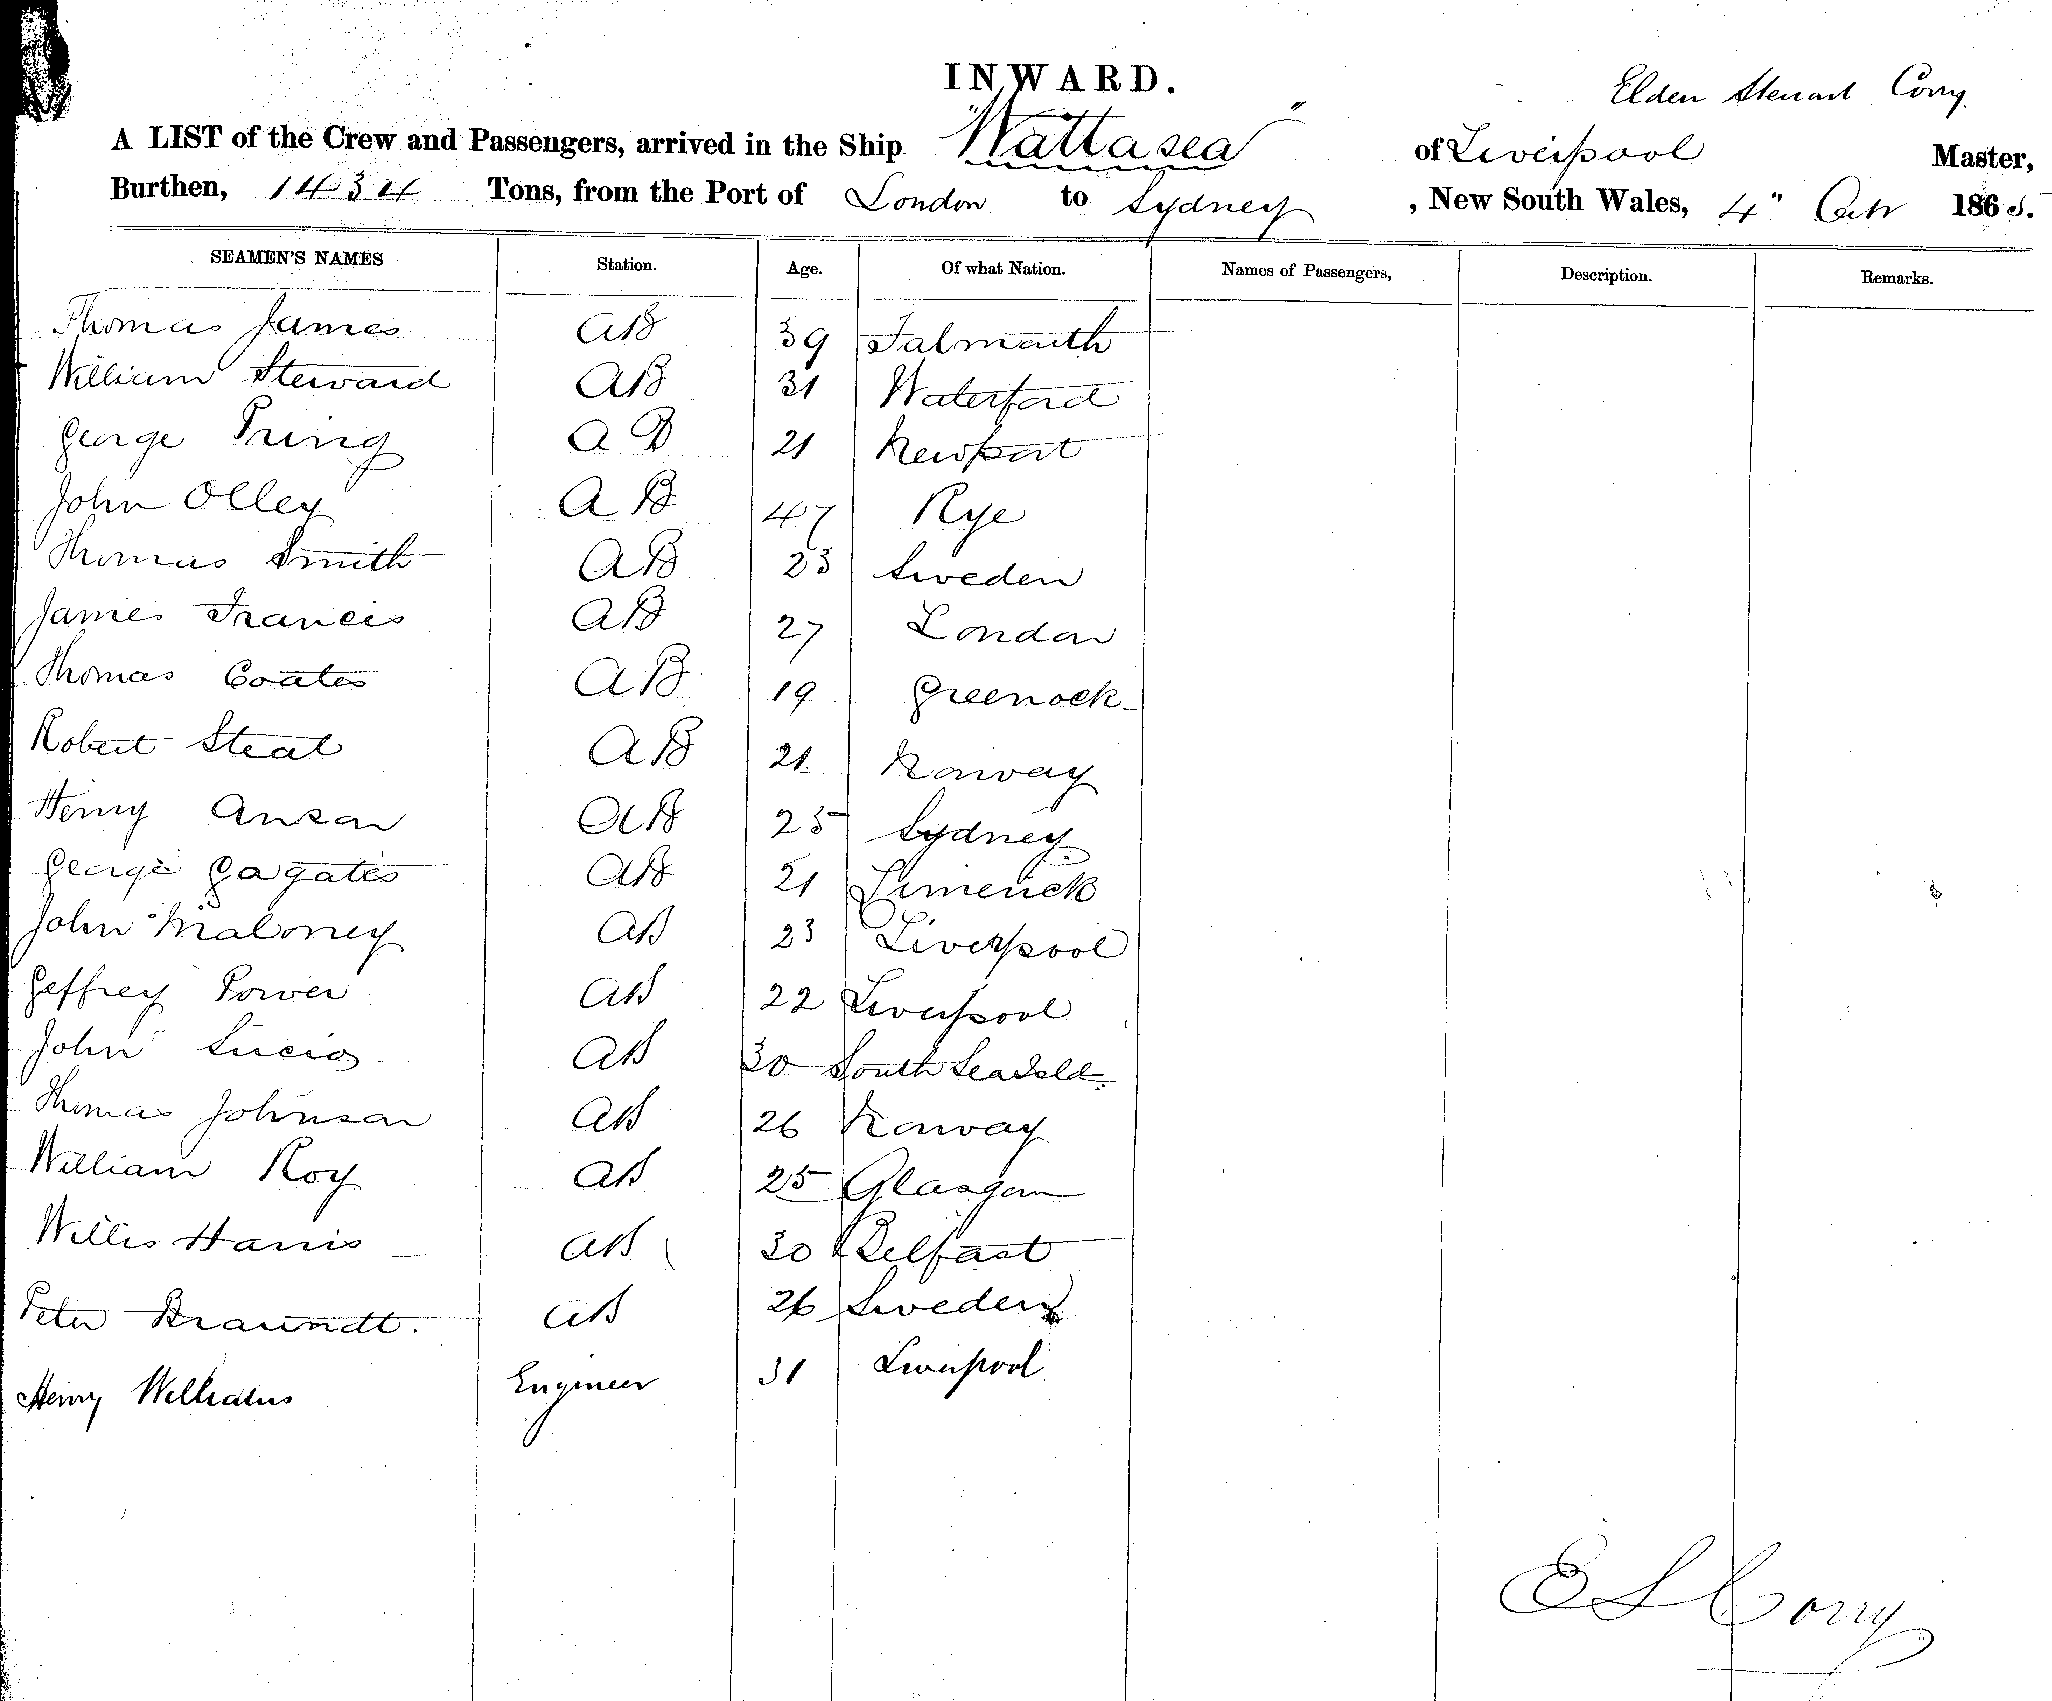 INWARD.
Elden Stewart Corry
A LIST of the Crew and Passengers, arrived in the Ship "Wattasea" of Liverpool Master,
Burthen, 1434 Tons, from the Port of London to Sydney, New South Wales, 4" Octr 1865.
SEAMEN'S NAMES Station. Age. Of what Nation. Names of Passengers, Description. Remarks.
Thomas James AB 39 Falmouth
William Steward AB 31 Waterford
George Pring AB 21 Newport
John Olley AB 47 Rye
Thomas Smith AB 23 Sweden
James Francis AB 27 London
Thomas Coates AB 19 Greenock
Robert Steat AB 21 Norway
Henry Anson AB 25 Sydney
George Gagates AB 21 Limerick
John Maloney AB 23 Liverpool
Geffrey Power AB 22 Liverpool
John Lucio AB 30 South Sea
Thomas Johnson AB 26 Norway
William Roy AB 25 Glasgow
Willis Harris AB 30 Belfast
Peter Braundt. AB 26 Sweden
Henry Williams Engineer 31 Liverpool
E S Corry